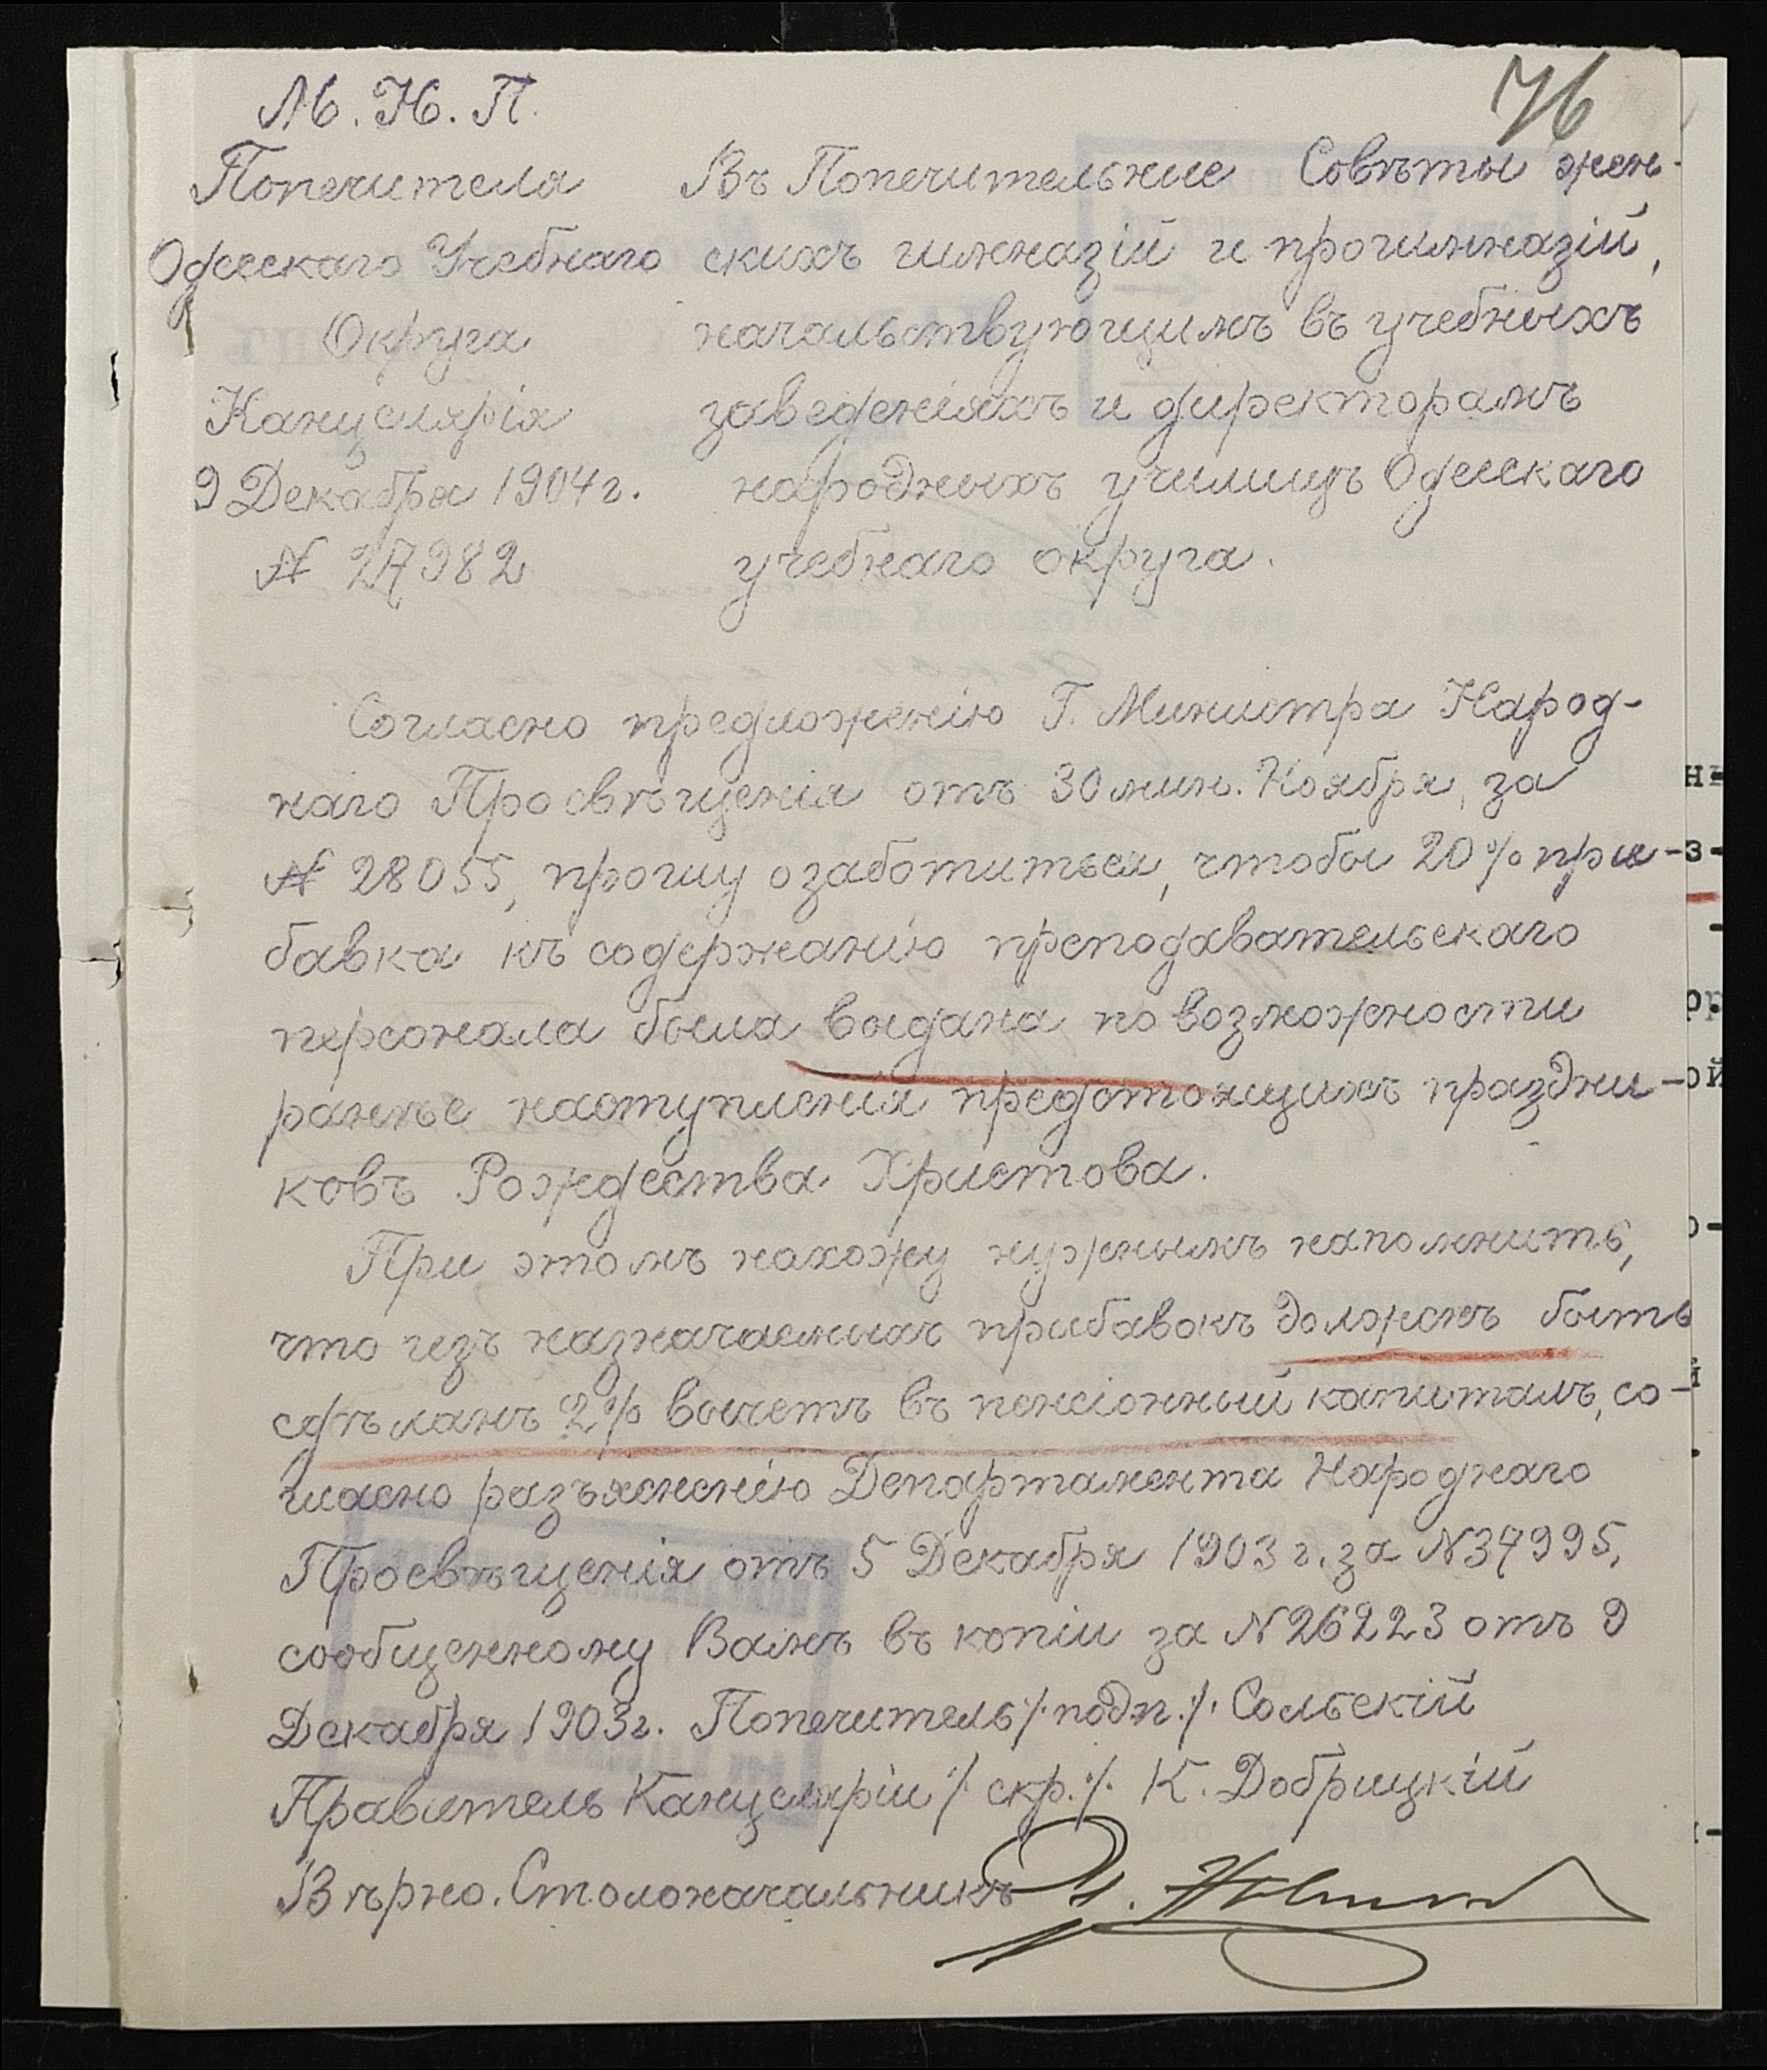 76
М. Н. П.
Попечителя
Одесскаго Учебнаго
Округа
Канцелярія
9 Декабря 1904 г.
№ 27982
Въ Попечительные Совѣты жен-
скихъ гимназій и прогимназій,
начальствующимъ въ учебныхъ
заведеніяхъ и директорамъ
народныхъ училищъ Одесскаго
учебнаго округа.
Согласно предложенію Г. Министра Народ-
наго Просвѣщенія отъ 30 мин. Ноября, за
№ 28055, прошу озаботиться, чтобы 20% при-
бавка къ содержанію преподавательскаго
персонала была выдана по возможности
ранѣе наступленія предстоящихъ праздни-
ковъ Рождества Христова.
При этомъ нахожу нужнымъ напомнить,
что изъ назначаемыхъ прибавокъ долженъ быть
сдѣланъ 2% вычетъ въ пенсіонный капиталъ, со-
гласно разъясненію Департамента Народнаго
Просвѣщенія отъ 5 Декабря 1903 г. за N 37995,
сообщенному Вамъ въ копіи за N 26223 отъ 9
Декабря 1903 г. Попечитель /. подп. /. Сольскій
Правитель Канцеляріи /. скр. /. К. Добрицкій
Вѣрно. Столоначальникъ